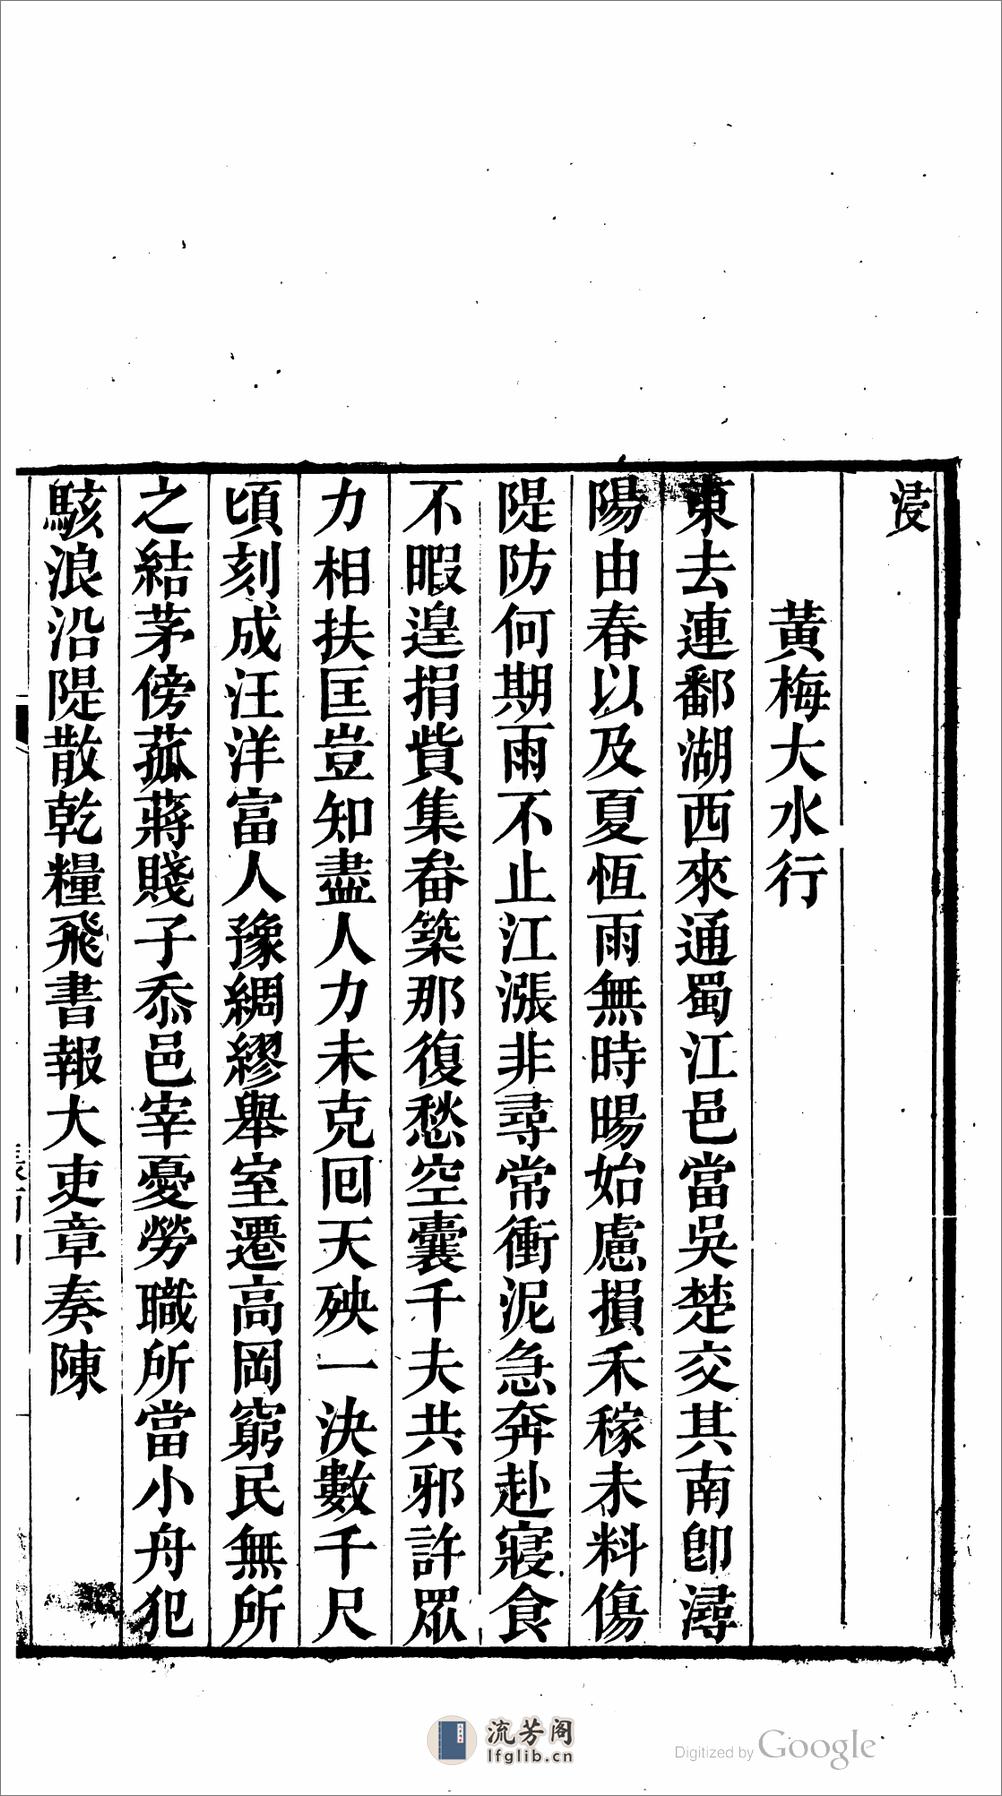 浸
黃梅大水行
東去連鄱湖西來通蜀江邑當吳楚交其南卽潯
陽由春以及夏恆雨無時暘始慮損禾稼未料傷
隄防何期雨不止江漲非尋常衝泥急奔赴寢食
不暇遑捐貲集畚築那復愁空囊千夫共邪許眾
力相扶匡豈知盡人力未克囘天殃一決數千尺
頃刻成汪洋富人豫綢繆舉室遷高岡窮民無所
之結茅傍菰蔣賤子忝邑宰憂勞職所當小舟犯
駭浪沿隄散乾糧飛書報大吏章奏陳
流芳阁
lfglib.cn
Digitized by Google